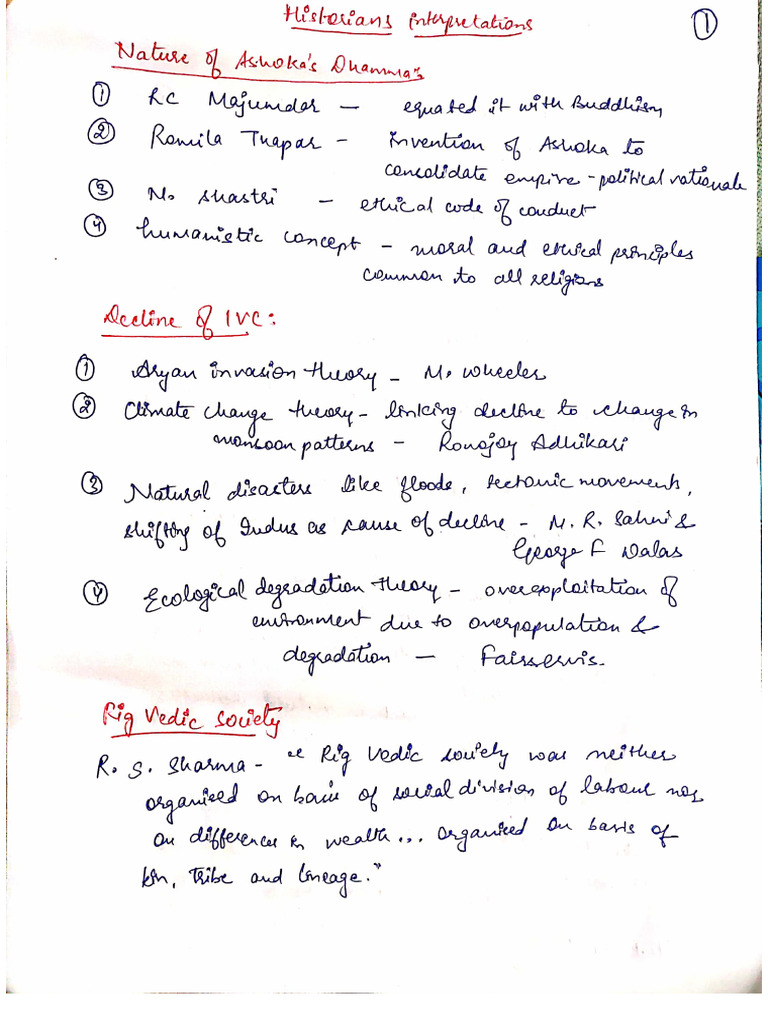 Historians interpretations
1
Nature of Ashoka's Dhamma's
1 RC Majumdar — equated it with Buddhism
2 Romila Thapar - invention of Ashoka to
consolidate empire - political rationale
3 N. Shastri - ethical code of conduct
4 humanistic concept - moral and ethical principles
common to all religions
Decline of IVC:
1 Aryan invasion theory - M. Wheeler
2 Climate change theory - linking decline to change in
monsoon patterns - Ronojoy Adhikari
3 Natural disasters like floods, tectonic movement,
shifting of Indus as cause of decline - M. R. Sahni &
George F Dalas
4 Ecological degradation theory - overexploitation of
environment due to overpopulation &
degradation — Fairservis.
Rig Vedic Society
R. S. Sharma - "Rig Vedic society was neither
organised on basis of social division of labour nor
on differences in wealth... organised on basis of
kin, tribe and lineage."